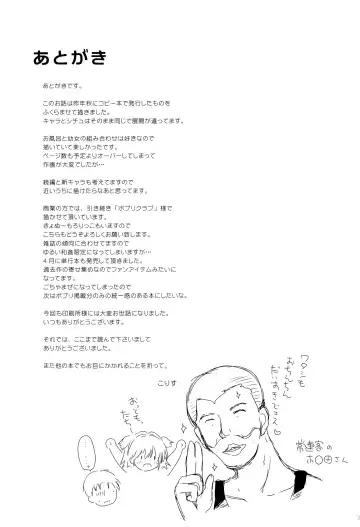 あとがき
あとがきです。
このお話は昨年秋にコピー本で発行したものを
ふくらませて描きました。
キャラとシチュはそのまま同じで展開が違ってます。
お風呂と幼女の組み合わせは好きなので
描いていて楽しかったです。
ページ数も予定よりオーバーしてしまって
作画が大変でしたが、
続編と新キャラも考えてますので
近いうちに描けたらなあと思ってます。
商業の方では、引き続き「ポプリクラブ」様で
描かせて頂いています。
きょぬーもろりっこもいますので
こちらもどうぞよろしくお願い致します。
雑誌の傾向に合わせてますので
ゆるい和姦限定になってしまいますが…
4月に単行本も発売して頂きました。
過去作の寄せ集めなのでファンアイテムみたいに
なってます。
ごちゃまぜになってしまったので
次はポプリ掲載分のみの統一感のある本にしたいな。
今回も印刷所様には大変お世話になりました。
いつもありがとうございます。
それでは、ここまで読んで下さいまして
ありがとうございました。
また他の本でもお目にかかれることを祈って。
こりす
ワタシも
おちんちん
だいすきデェス♡
常連客の
ホ〇田さん
おっても
たち〜
…